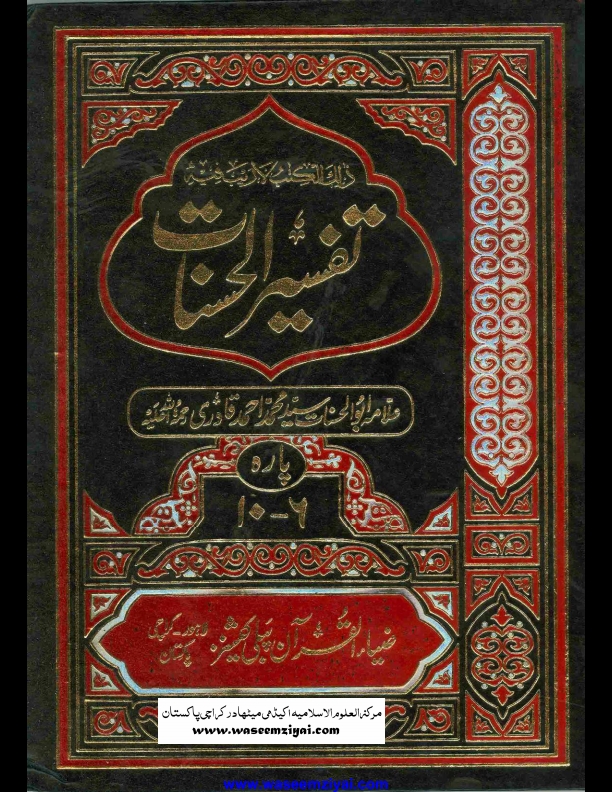 ذٰلك الكتب لا ريب فيه
تفسیر الحسنات
علامہ ابوالحسنات سید محمد احمد قادری رحمۃ اللہ علیہ
پارہ
۶ — ۱۰
ضیاء القرآن پبلی کیشنز لاہور - کراچی
پاکستان
مرکز العلوم الاسلامیہ اکیڈمی میٹھادر کراچی پاکستان
www.waseemziyai.com
www.waseemziyai.com